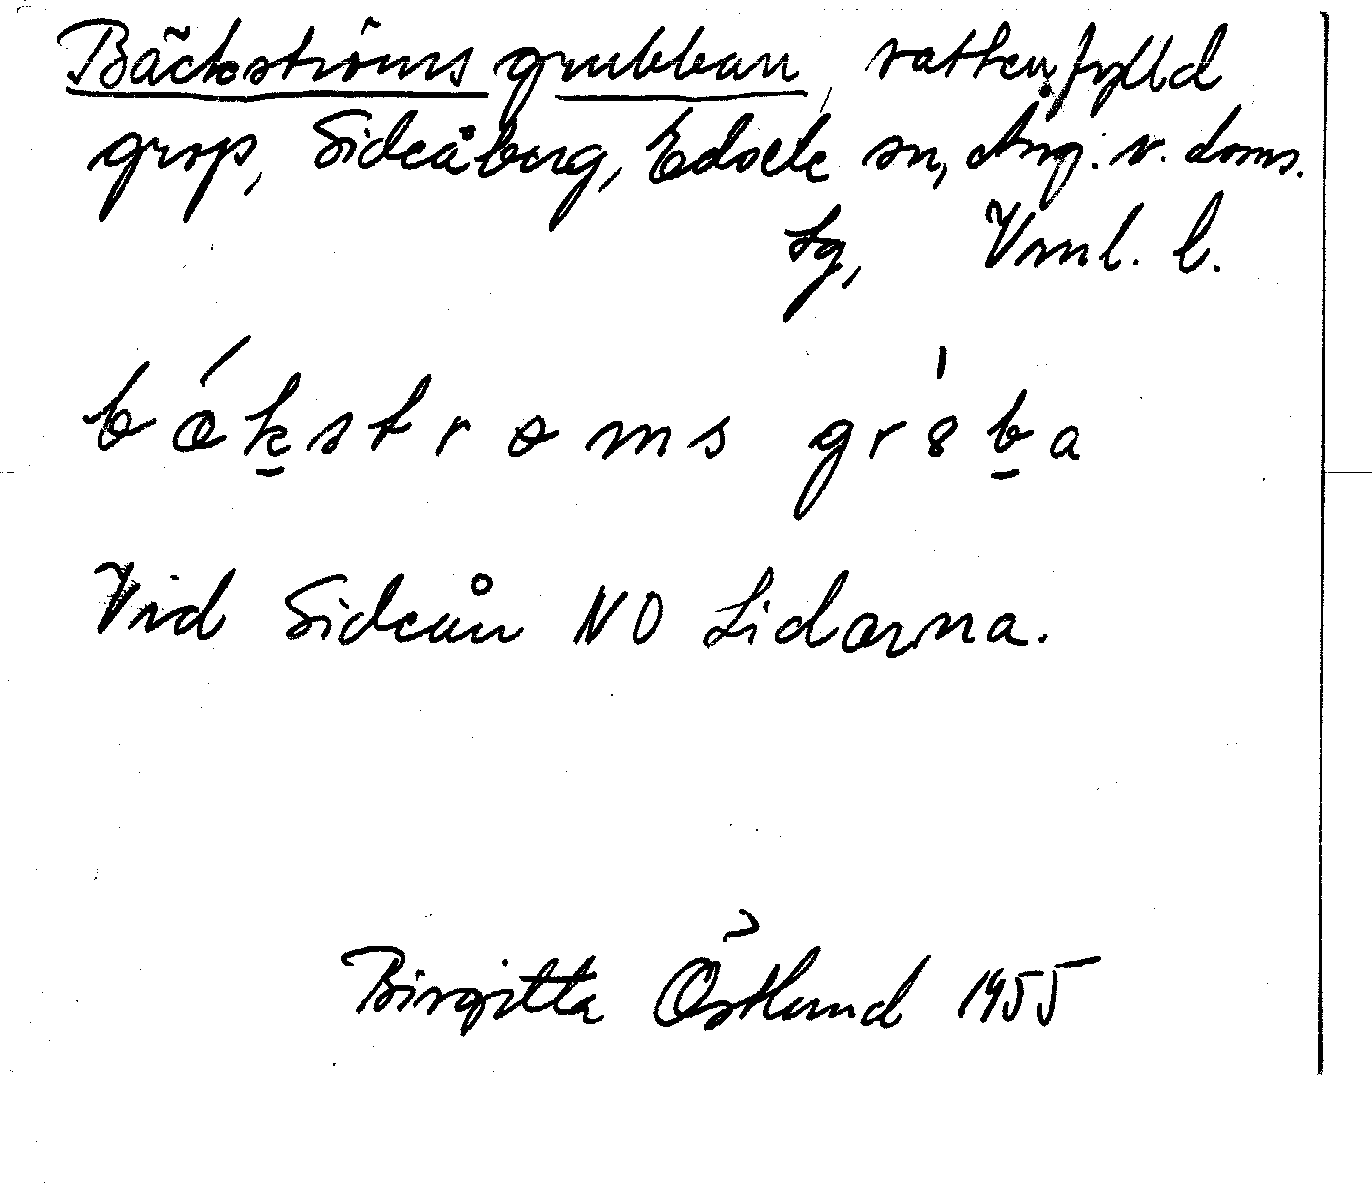 Bäckströms grubban, vattenfylld
grop, Sideåberg, Edsele sn, Ång. v. doms.
sg, Vml. l.
Vid Sideån NO Lidarna.
Birgitta Östlund 1955